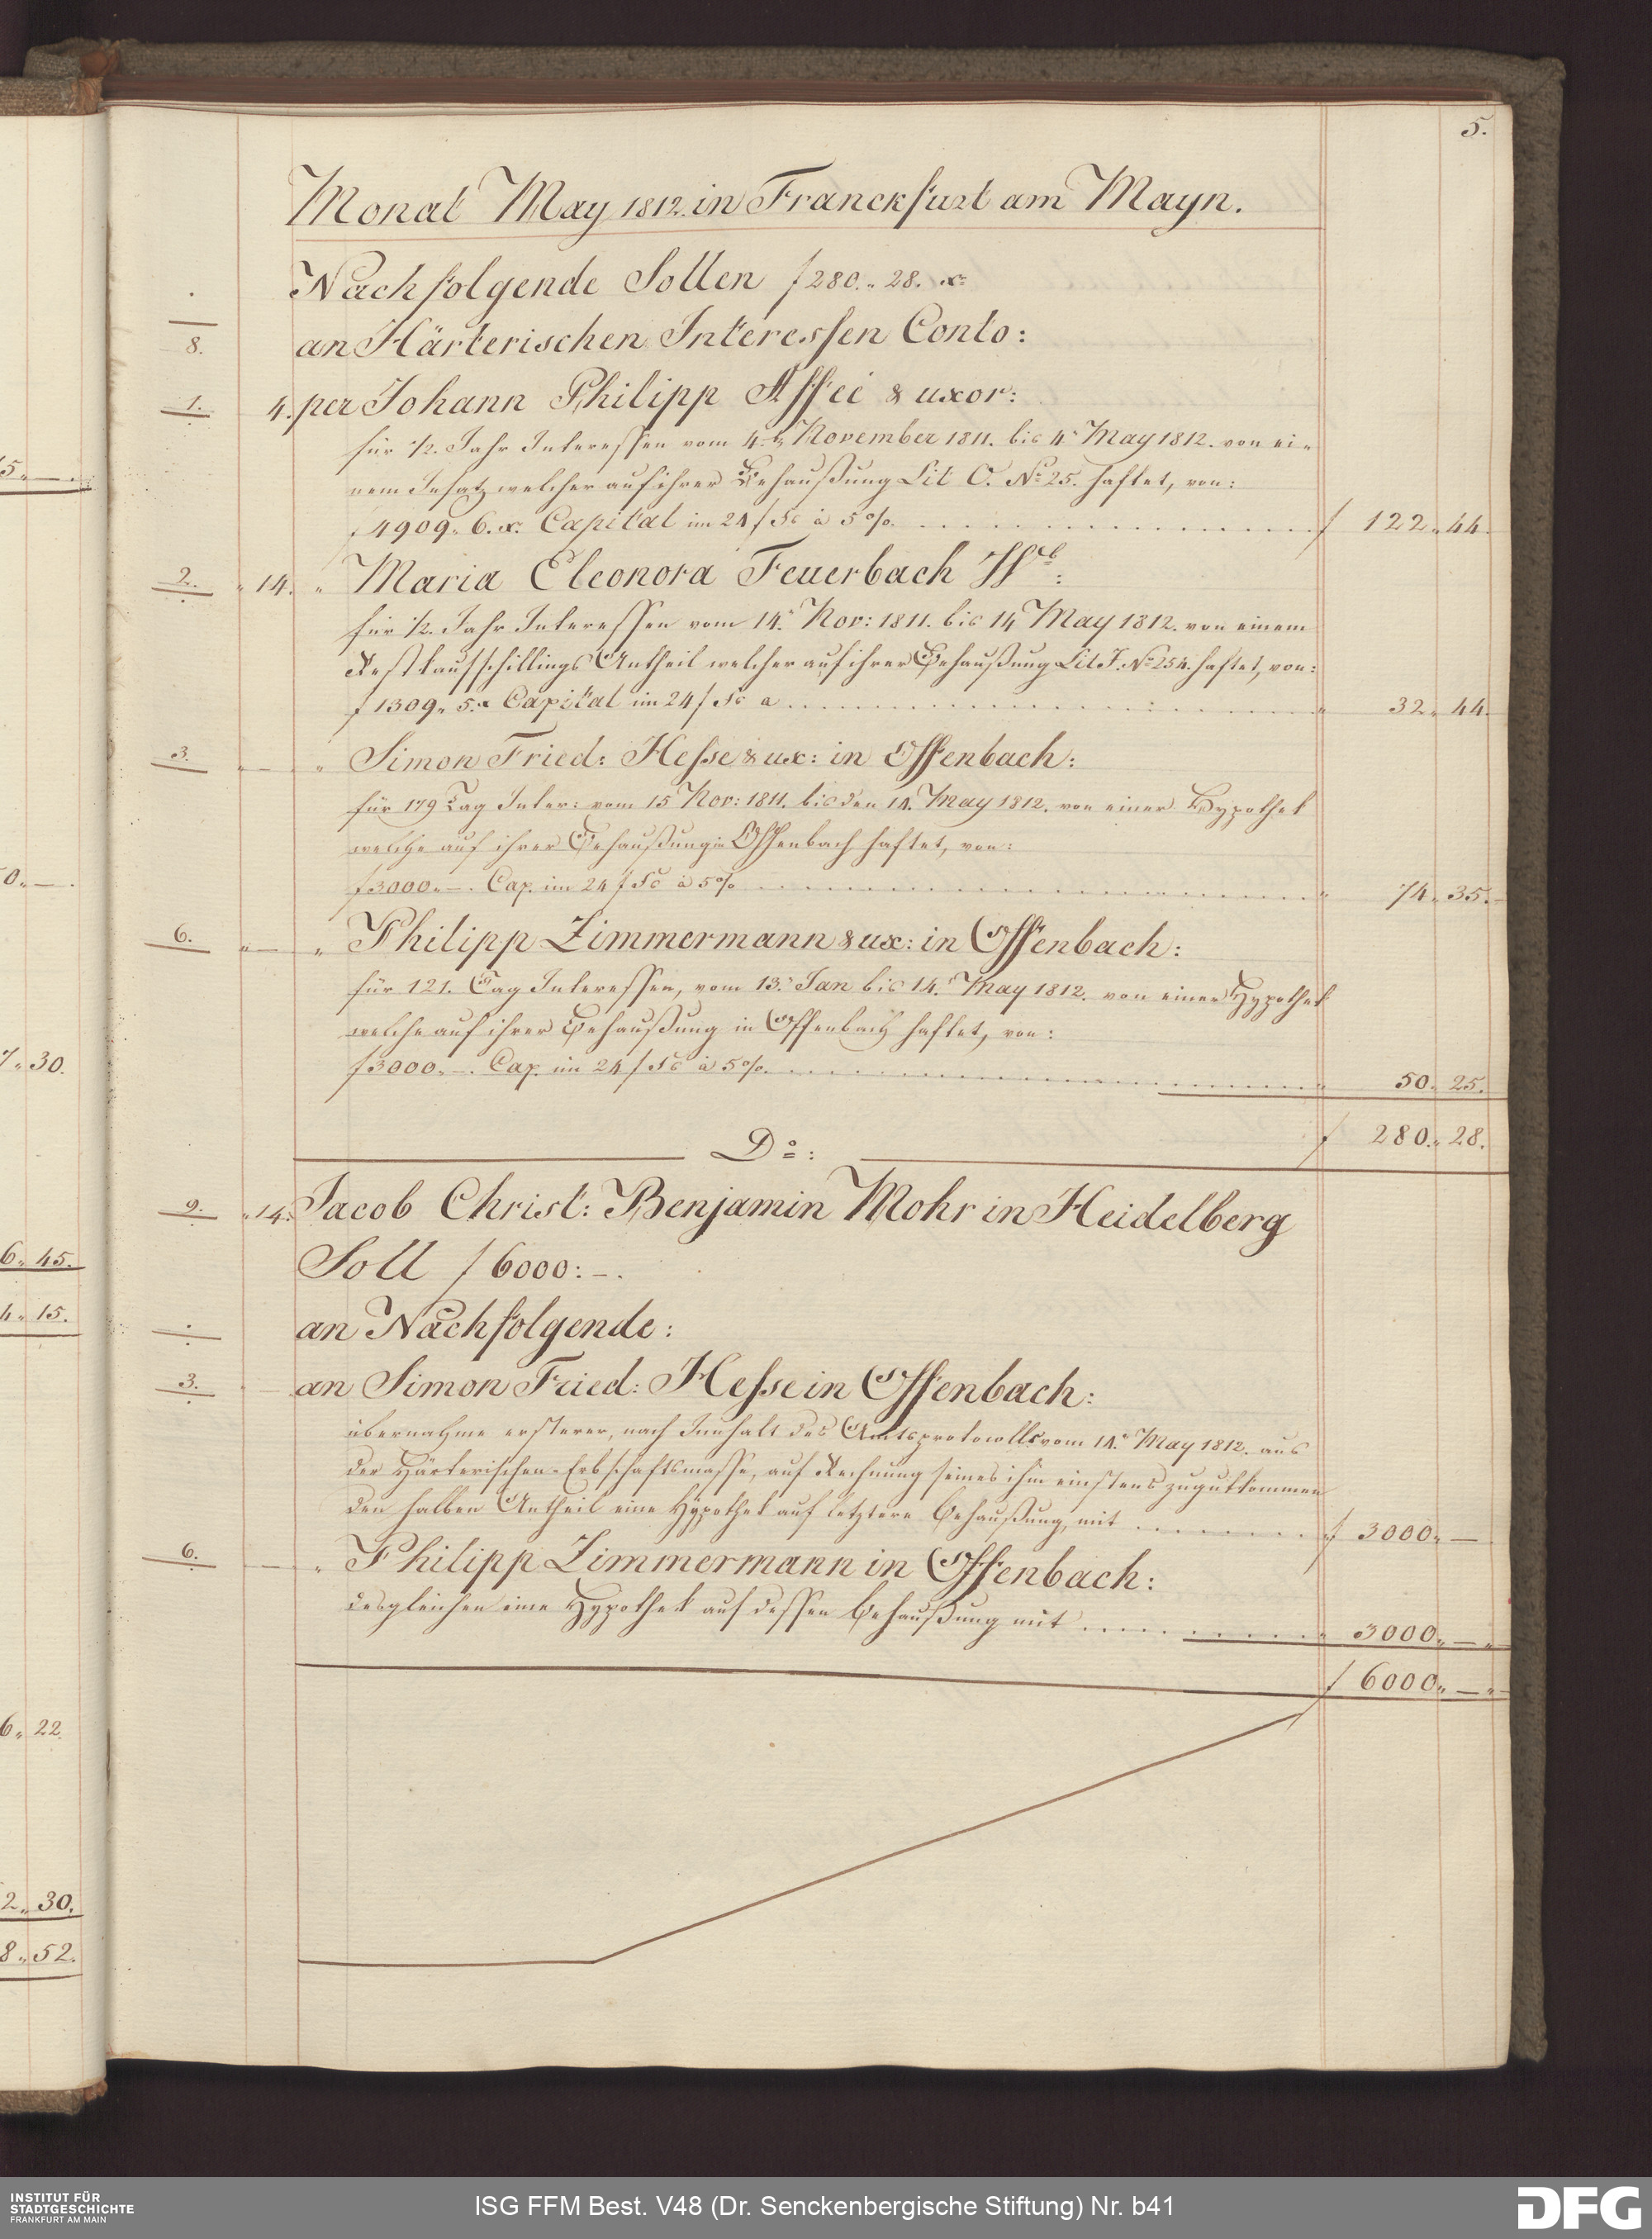 5.
Monat May 1812. in Franckfurt am Mayn.
Nachfolgende Sollen f 280.. 28. xr
8. an Härterischen Interessen Conto:
1. 4. per Johann Philipp Affei & uxor:
für 1/2. Jahr Interessen vom 4. November 1811. bis 4. May 1812. von ei-
nem Insatz welcher auf ihrer Behaußung Lit. O. No. 25. haftet, von:
f 4909.. 6. xr. Capital im 24 f à 5 %. f 122.. 44.
2. " 14. " Maria Eleonora Feuerbach Wb:
für 1/2. Jahr Interessen vom 14. Nov: 1811. bis 14 May 1812. von einem
Restkaufschillings Antheil welcher auf ihrer Behaußung Lit. J. No. 254. haftet, von:
f 1309.. 5. xr Capital im 24 f a " 32.. 44.
3. " — " Simon Fried: Hesse & ux: in Offenbach:
für 179 Tag Inter: vom 15 Nov: 1811. bis den 14. May 1812. von einer Hypothek
welche auf ihrer Behaußung in Offenbach haftet, von:
f 3000.. —. Cap. im 24 f à 5 % " 74.. 35.
6. " — " Philipp Zimmermann & ux: in Offenbach:
für 121. Tag Interessen, vom 13. Jan bis 14. May 1812. von einer Hypothek
welche auf ihrer Behaußung in Offenbach haftet, von:
f 3000.. —. Cap. im 24 f à 5 %. " 50.. 25.
f 280.. 28.
Do:
9. " 14. Jacob Christ: Benjamin Mohr in Heidelberg
Soll f 6000: —.
an Nachfolgende:
3. an Simon Fried: Hesse in Offenbach:
übernahme ersterer, nach Innhalt des Amtsprotocolls vom 14. May 1812. aus
der Härterischen Erbschaftsmasse, auf Rechnung seines ihm einstens zugutkommen
den halben Antheil eine Hypothek auf letztere Behaußung, mit f 3000.. —
6. — " Philipp Zimmermann in Offenbach:
desgleichen eine Hypothek auf dessen Behaußung mit " 3000.. —
f 6000.. —
5.. —.
0.. —.
7.. 30.
6.. 45.
4.. 15.
6.. 22.
2.. 30.
8.. 52.
INSTITUT FÜR
STADTGESCHICHTE
FRANKFURT AM MAIN
ISG FFM Best. V48 (Dr. Senckenbergische Stiftung) Nr. b41
DFG